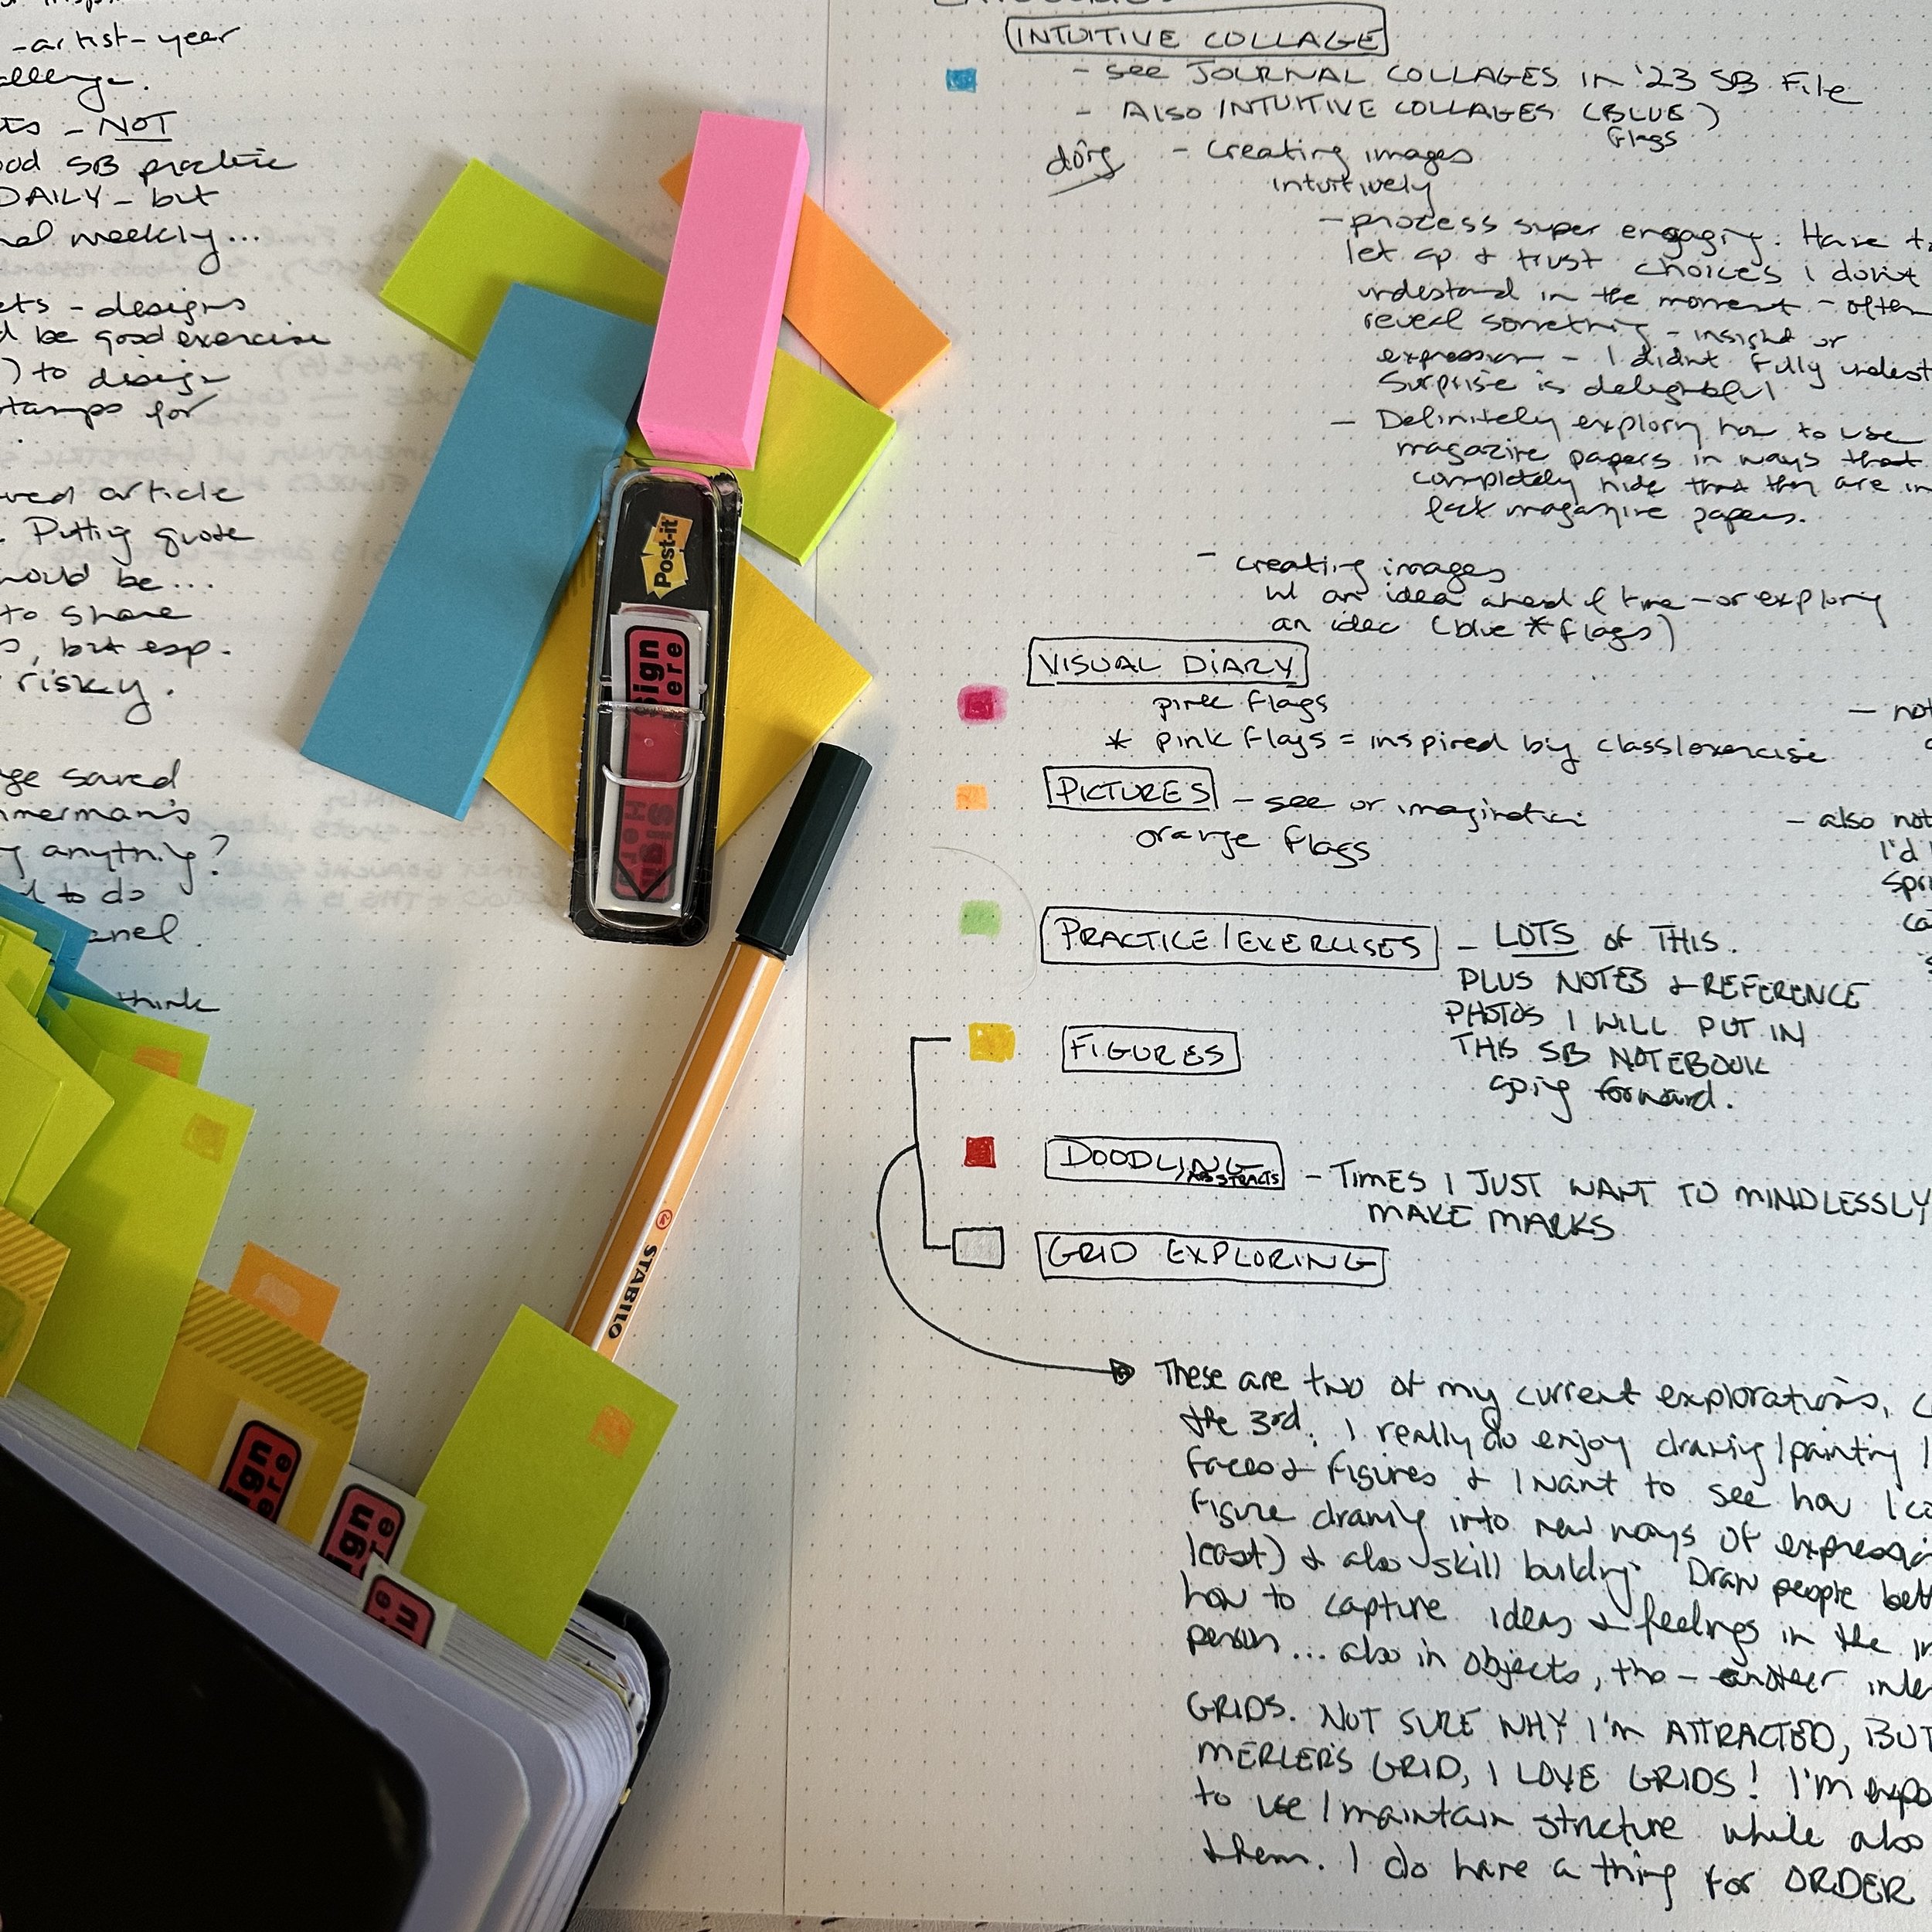 -artist-year
allenge.
ts - NOT
ood SB practice
DAILY - but
nal weekly...
ets - designs
d be good exercise
) to design
tamps for
ved article
. Putting quote
would be...
to share
s, but esp.
risky.
ge saved
mmerman's
g anything?
d to do
anel.
think
Post-it
Sign
ere
Sign
Here
STABILO
ign
ere
ign
re
INTUITIVE COLLAGE
- see JOURNAL COLLAGES IN '23 SB File
- Also INTUITIVE COLLAGES (BLUE)
flags
doing - creating images
intuitively
- process super engaging. Have t
let go & trust choices I don't
understand in the moment - often
reveal something - insight or
expression - I didnt fully underst
Surprise is delightful
- Definitely exploring how to use
magazine papers in ways that
completely hide that they are in
fact magazine papers.
- creating images
w/ an idea ahead of time - or exploring
an idea (blue * flags)
VISUAL DIARY
pink flags
- not
* pink flags = inspired by class/exercise
PICTURES - see or imagination
orange flags
- also not
I'd
Spri
ca
PRACTICE/EXERCISES - LOTS OF THIS.
PLUS NOTES & REFERENCE
PHOTOS I WILL PUT IN
THIS SB NOTEBOOK
going forward.
FIGURES
DOODLING
ABSTRACTS
- TIMES I JUST WANT TO MINDLESSLY
MAKE MARKS
GRID EXPLORING
These are two of my current explorations,
the 3rd. I really do enjoy drawing/painting
faces & figures & I want to see how I c
figure drawing into new ways of expressio
least) & also skill building. Draw people bett
how to capture ideas & feelings in the
person... also in objects, tho - another inte
GRIDS. NOT SURE WHY I'M ATTRACTED, BUT
MERLER'S GRID, I LOVE GRIDS! I'm expo
to use/maintain structure while also
them. I do have a thing for ORDER